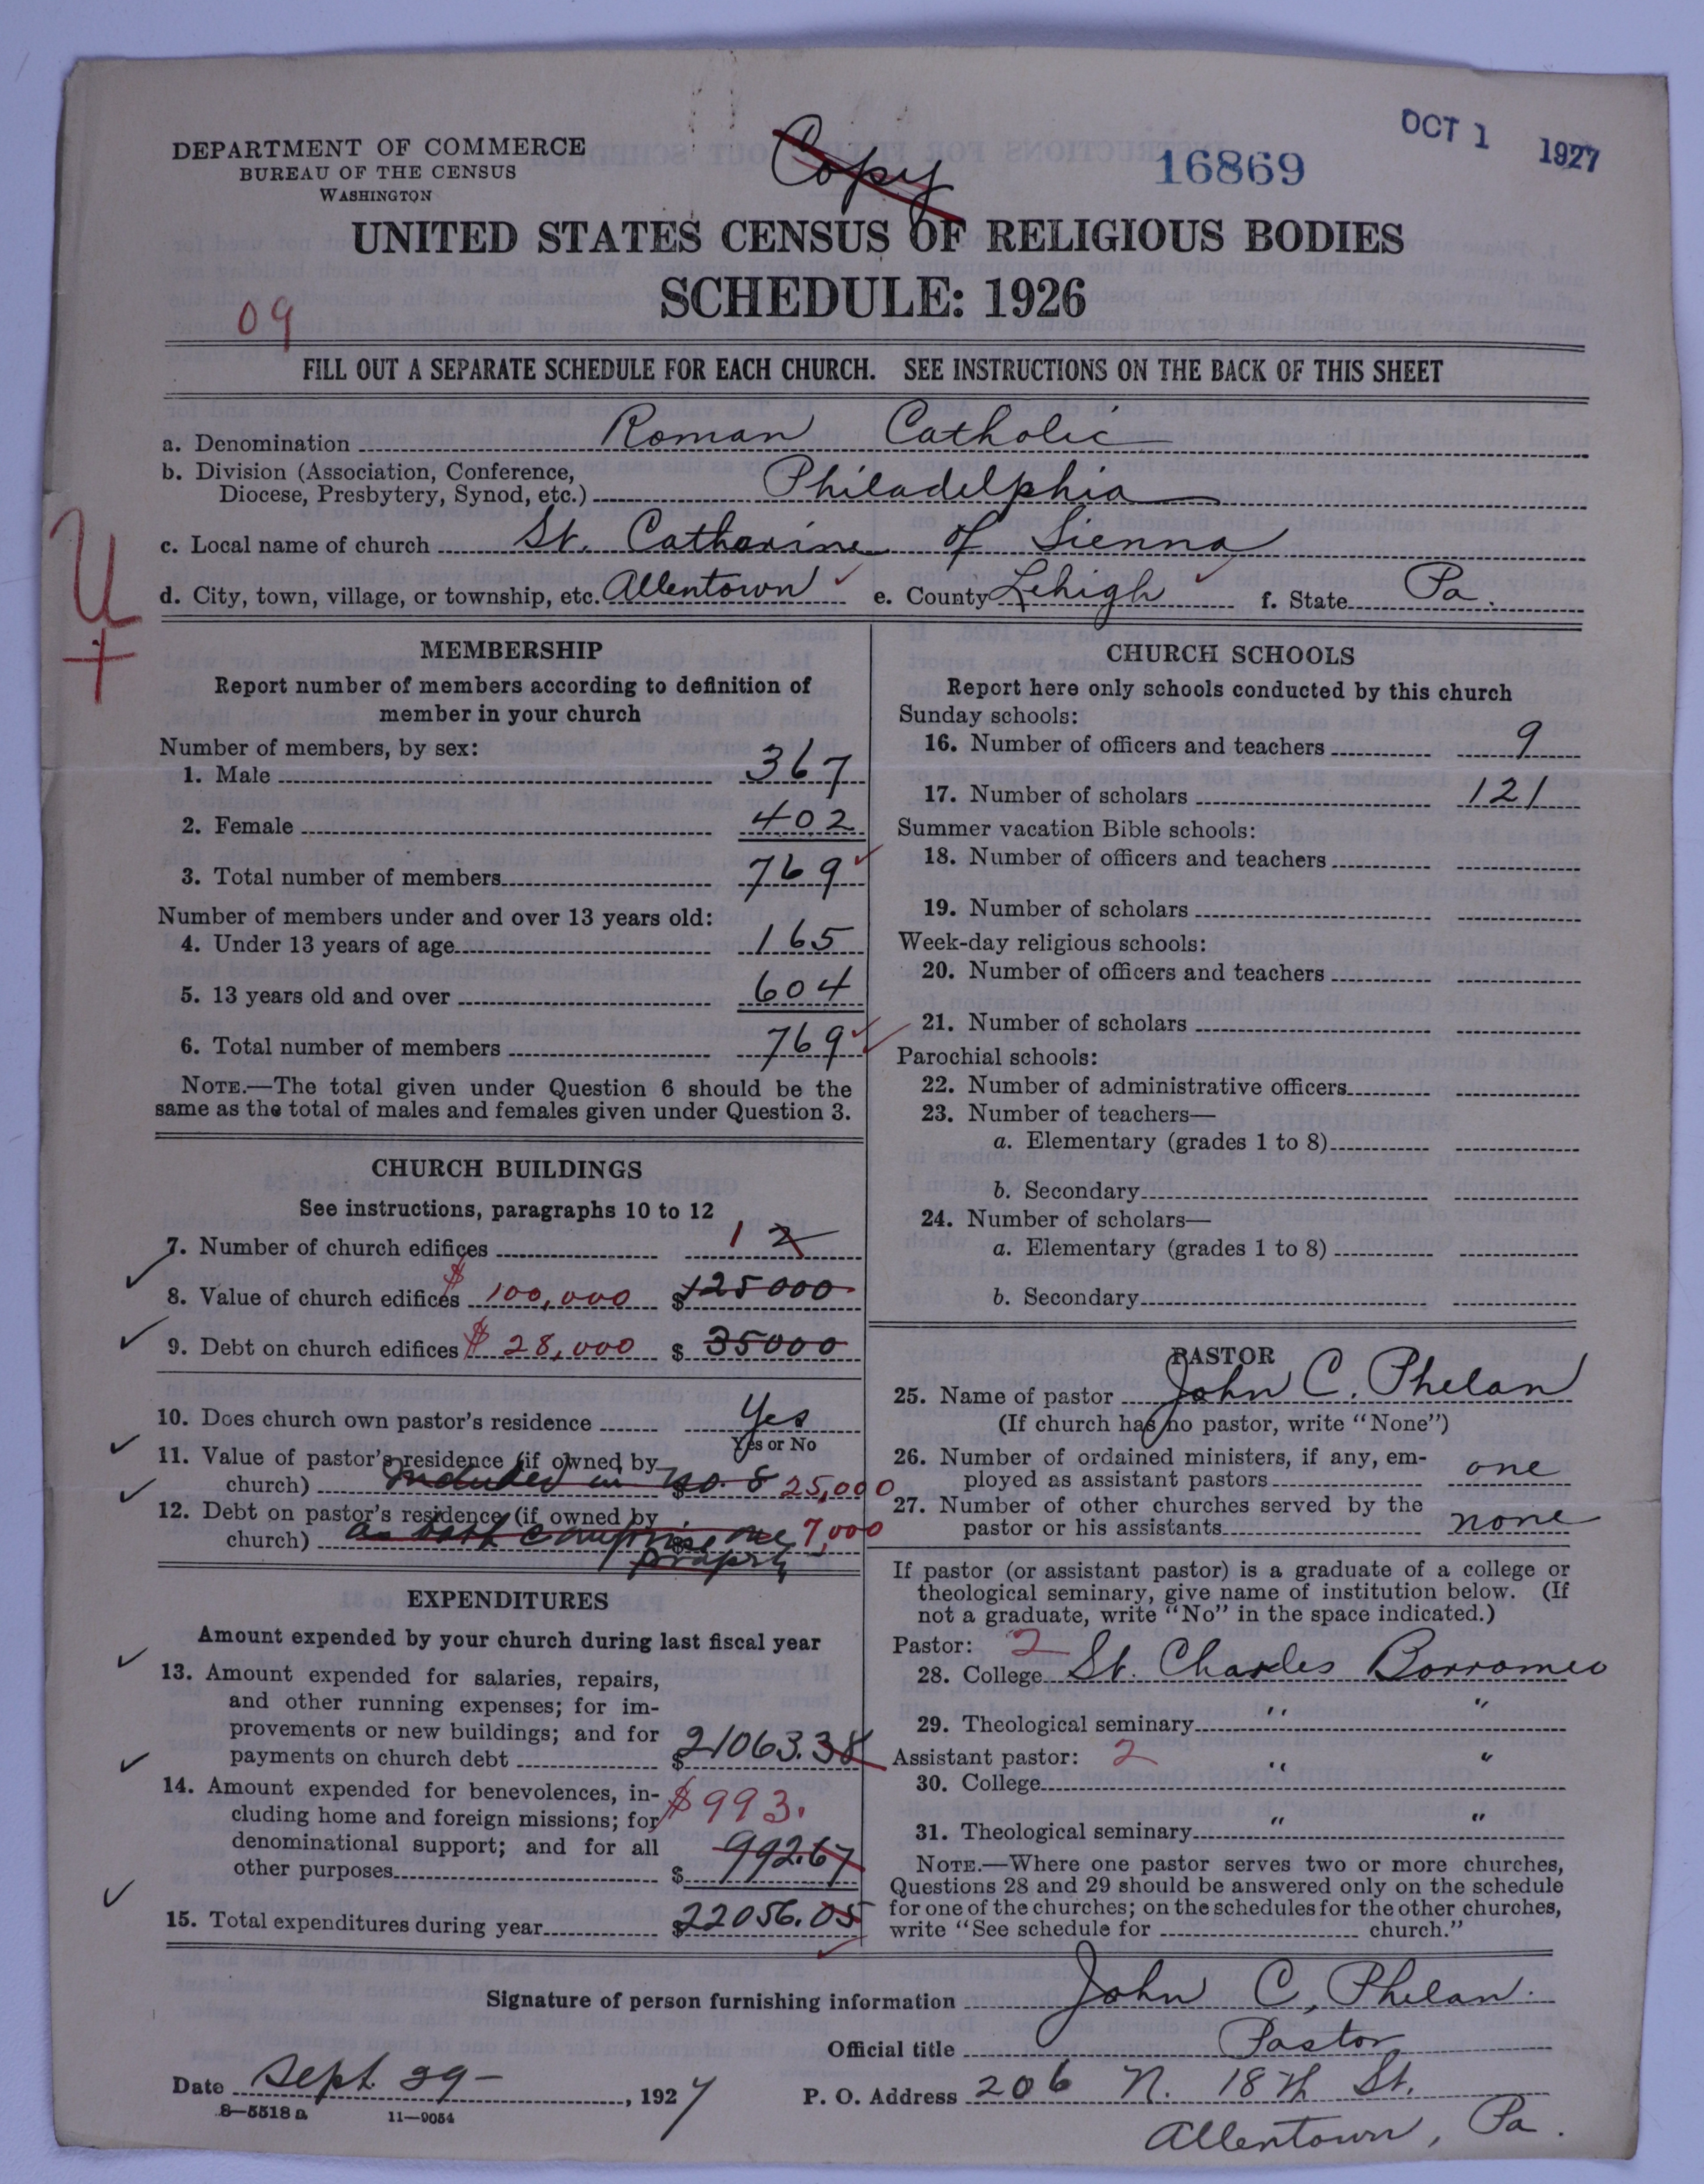 DEPARTMENT OF COMMERCE
BUREAU OF THE CENSUS
WASHINGTON
Copy
16869
OCT 1 1927
UNITED STATES CENSUS OF RELIGIOUS BODIES
SCHEDULE: 1926
09
FILL OUT A SEPARATE SCHEDULE FOR EACH CHURCH. SEE INSTRUCTIONS ON THE BACK OF THIS SHEET
a. Denomination Roman Catholic
b. Division (Association, Conference,
Diocese, Presbytery, Synod, etc.) Philadelphia
c. Local name of church St. Catharine of Sienna
d. City, town, village, or township, etc. Allentown e. County Lehigh f. State Pa.
U
+
MEMBERSHIP
Report number of members according to definition of
member in your church
Number of members, by sex:
1. Male 367
2. Female 402
3. Total number of members 769
Number of members under and over 13 years old:
4. Under 13 years of age 165
5. 13 years old and over 604
6. Total number of members 769
NOTE.—The total given under Question 6 should be the
same as the total of males and females given under Question 3.
CHURCH BUILDINGS
See instructions, paragraphs 10 to 12
7. Number of church edifices 1 2
8. Value of church edifices $ 100,000 $ 125000
9. Debt on church edifices $ 28,000 $ 35000
10. Does church own pastor's residence Yes
Yes or No
11. Value of pastor's residence (if owned by
church) Included in no. 8 $ 25,000
12. Debt on pastor's residence (if owned by
church) as both comprise one $ 7,000
property
EXPENDITURES
Amount expended by your church during last fiscal year
13. Amount expended for salaries, repairs,
and other running expenses; for im-
provements or new buildings; and for
payments on church debt $ 21063.38
14. Amount expended for benevolences, in-
cluding home and foreign missions; for $993.
denominational support; and for all
other purposes $ 992.67
15. Total expenditures during year $22056.05
CHURCH SCHOOLS
Report here only schools conducted by this church
Sunday schools:
16. Number of officers and teachers 9
17. Number of scholars 121
Summer vacation Bible schools:
18. Number of officers and teachers
19. Number of scholars
Week-day religious schools:
20. Number of officers and teachers
21. Number of scholars
Parochial schools:
22. Number of administrative officers
23. Number of teachers—
a. Elementary (grades 1 to 8)
b. Secondary
24. Number of scholars—
a. Elementary (grades 1 to 8)
b. Secondary
PASTOR
25. Name of pastor John C. Phelan
(If church has no pastor, write "None")
26. Number of ordained ministers, if any, em-
ployed as assistant pastors one
27. Number of other churches served by the
pastor or his assistants none
If pastor (or assistant pastor) is a graduate of a college or
theological seminary, give name of institution below. (If
not a graduate, write "No" in the space indicated.)
Pastor: 2
28. College St. Charles Borromeo
29. Theological seminary " "
Assistant pastor: 2
30. College " "
31. Theological seminary " "
NOTE.—Where one pastor serves two or more churches,
Questions 28 and 29 should be answered only on the schedule
for one of the churches; on the schedules for the other churches,
write "See schedule for church."
Signature of person furnishing information John C. Phelan.
Official title Pastor
Date Sept. 29- , 1927 P. O. Address 206 N. 18th St.
8—5518a 11—9054
Allentown, Pa.